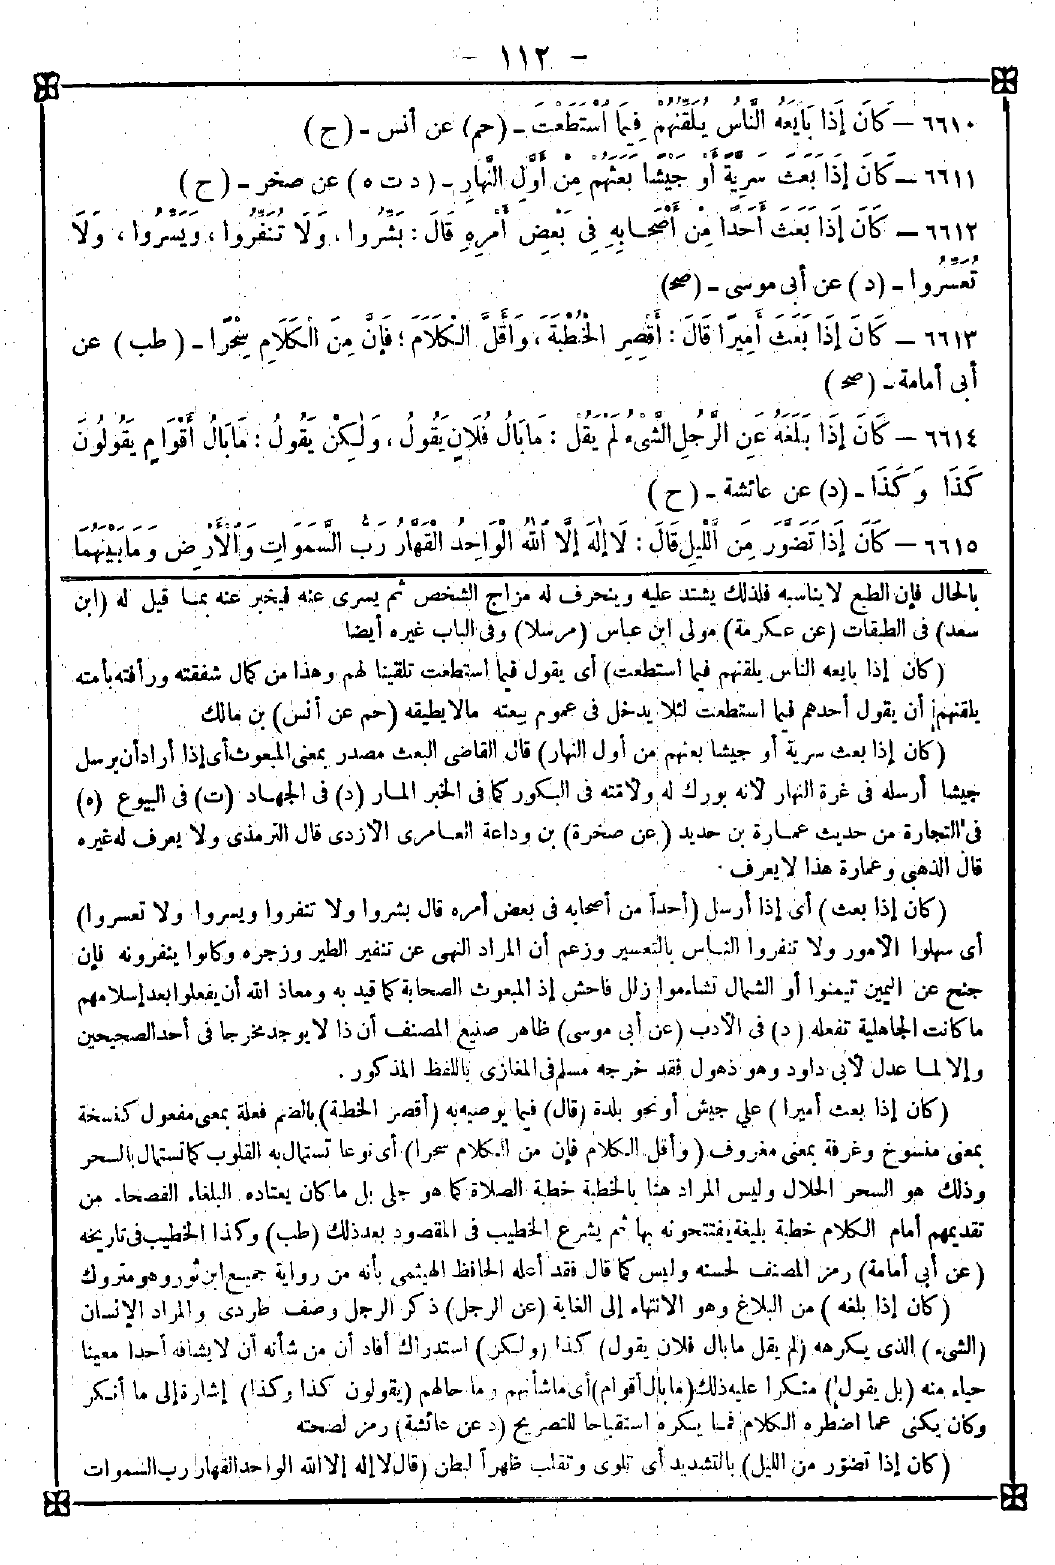 - ١١٢ -
٦٦١٠ - كَانَ إِذَا بَايَعَهُ النَّاسُ يُلَقِّنُهُمْ فِيمَا اسْتَطَعْتَ - (حم) عن أنس - (ح)
٦٦١١ - كَانَ إِذَا بَعَثَ سَرِيَّةً أَوْ جَيْشًا بَعَثَهُمْ مِنْ أَوَّلِ النَّهَارِ - (د ت ه) عن صخر - (ح)
٦٦١٢ - كَانَ إِذَا بَعَثَ أَحَدًا مِنْ أَصْحَابِهِ فِى بَعْضِ أَمْرِهِ قَالَ: بَشِّرُوا، وَلَا تُنَفِّرُوا، وَيَسِّرُوا، وَلَا
تُعَسِّرُوا - (د) عن أبى موسى - (صح)
٦٦١٣ - كَانَ إِذَا بَعَثَ أَمِيرًا قَالَ: أَقْصِرِ الْخُطْبَةَ، وَأَقِلَّ الْكَلَامَ؛ فَإِنَّ مِنَ الْكَلَامِ سِحْرًا - (طب) عن
أبى أمامة - (صح)
٦٦١٤ - كَانَ إِذَا بَلَغَهُ عَنِ الرَّجُلِ الشَّىْءُ لَمْ يَقُلْ: مَا بَالُ فُلَانٍ يَقُولُ، وَلَكِنْ يَقُولُ: مَا بَالُ أَقْوَامٍ يَقُولُونَ
كَذَا وَكَذَا - (د) عن عائشة - (ح)
٦٦١٥ - كَانَ إِذَا تَضَوَّرَ مِنَ اللَّيْلِ قَالَ: لَا إِلَهَ إِلَّا اللهُ الْوَاحِدُ الْقَهَّارُ رَبُّ السَّمَوَاتِ وَالْأَرْضِ وَمَا بَيْنَهُمَا
بالحال فإن الطبع لا يناسبه فلذلك يشتد عليه وينحرف له مزاج الشخص ثم يسرى عنه فيخبر عنه بما قيل له (ابن
سعد) فى الطبقات (عن عكرمة) مولى ابن عباس (مرسلا) وفى الباب غيره أيضا
(كان إذا بايعه الناس يلقنهم فيما استطعت) أى يقول فيما استطعت تلقينا لهم وهذا من كمال شفقته ورأفته بأمته
يلقنهم أن يقول أحدهم فيما استطعت لئلا يدخل فى عموم بيعته مالا يطيقه (حم عن أنس) بن مالك
(كان إذا بعث سرية أو جيشا بعثهم من أول النهار) قال القاضى البعث مصدر بمعنى المبعوث أى إذا أراد أن يرسل
جيشا أرسله فى غرة النهار لأنه بورك له ولأمته فى البكور كما فى الخبر المار (د) فى الجهاد (ت) فى البيوع (ه)
فى التجارة من حديث عمارة بن حديد (عن صخرة) بن وداعة العامرى الأزدى قال الترمذى ولا يعرف له غيره
قال الذهبى وعمارة هذا لا يعرف .
(كان إذا بعث) أى إذا أرسل (أحداً من أصحابه فى بعض أمره قال بشروا ولا تنفروا ويسروا ولا تعسروا)
أى سهلوا الأمور ولا تنفروا الناس بالتعسير وزعم أن المراد النهى عن تنفير الطير وزجره وكانوا ينفرونه فإن
جنح عن اليمين تيمنوا أو الشمال تشاءموا زلل فاحش إذ المبعوث الصحابة كما قيد به ومعاذ الله أن يفعلوا بعد إسلامهم
ما كانت الجاهلية تفعله (د) فى الأدب (عن أبى موسى) ظاهر صنيع المصنف أن ذا لا يوجد مخرجا فى أحد الصحيحين
وإلا لما عدل لأبى داود وهو ذهول فقد خرجه مسلم فى المغازى باللفظ المذكور .
(كان إذا بعث أميرا) على جيش أو نحو بلدة (قال) فيما يوصيه به (أقصر الخطبة) بالضم فعلة بمعنى مفعول كنسخة
بمعنى منسوخ وغرفة بمعنى مغروف (وأقل الكلام فإن من الكلام سحرا) أى نوعا تستمال به القلوب كما تستمال بالسحر
وذلك هو السحر الحلال وليس المراد هنا بالخطبة خطبة الصلاة كما هو جلى بل ما كان يعتاده البلغاء الفصحاء من
تقديمهم أمام الكلام خطبة بليغة يفتتحونه بها ثم يشرع الخطيب فى المقصود بعد ذلك (طب) وكذا الخطيب فى تاريخه
(عن أبى أمامة) رمز المصنف لحسنه وليس كما قال فقد أعله الحافظ الهيثمى بأنه من رواية جميع ابن ثور وهو متروك
(كان إذا بلغه) من البلاغ وهو الانتهاء إلى الغاية (عن الرجل) ذكر الرجل وصف طردى والمراد الإنسان
(الشىء) الذى يكرهه (لم يقل ما بال فلان يقول) كذا (ولكن) استدراك أفاد أن من شأنه أن لا يشافه أحدا معينا
حياء منه (بل يقول) منكرا عليه ذلك (ما بال أقوام) أى ما شأنهم وما حالهم (يقولون كذا وكذا) إشارة إلى ما أنكر
وكان يكنى عما اضطره الكلام فما يكره استقباحا للتصريح (د عن عائشة) رمز لصحته
(كان إذا تضور من الليل) بالتشديد أى تلوى وتقلب ظهراً لبطن (قال لا إله إلا الله الواحد القهار رب السموات